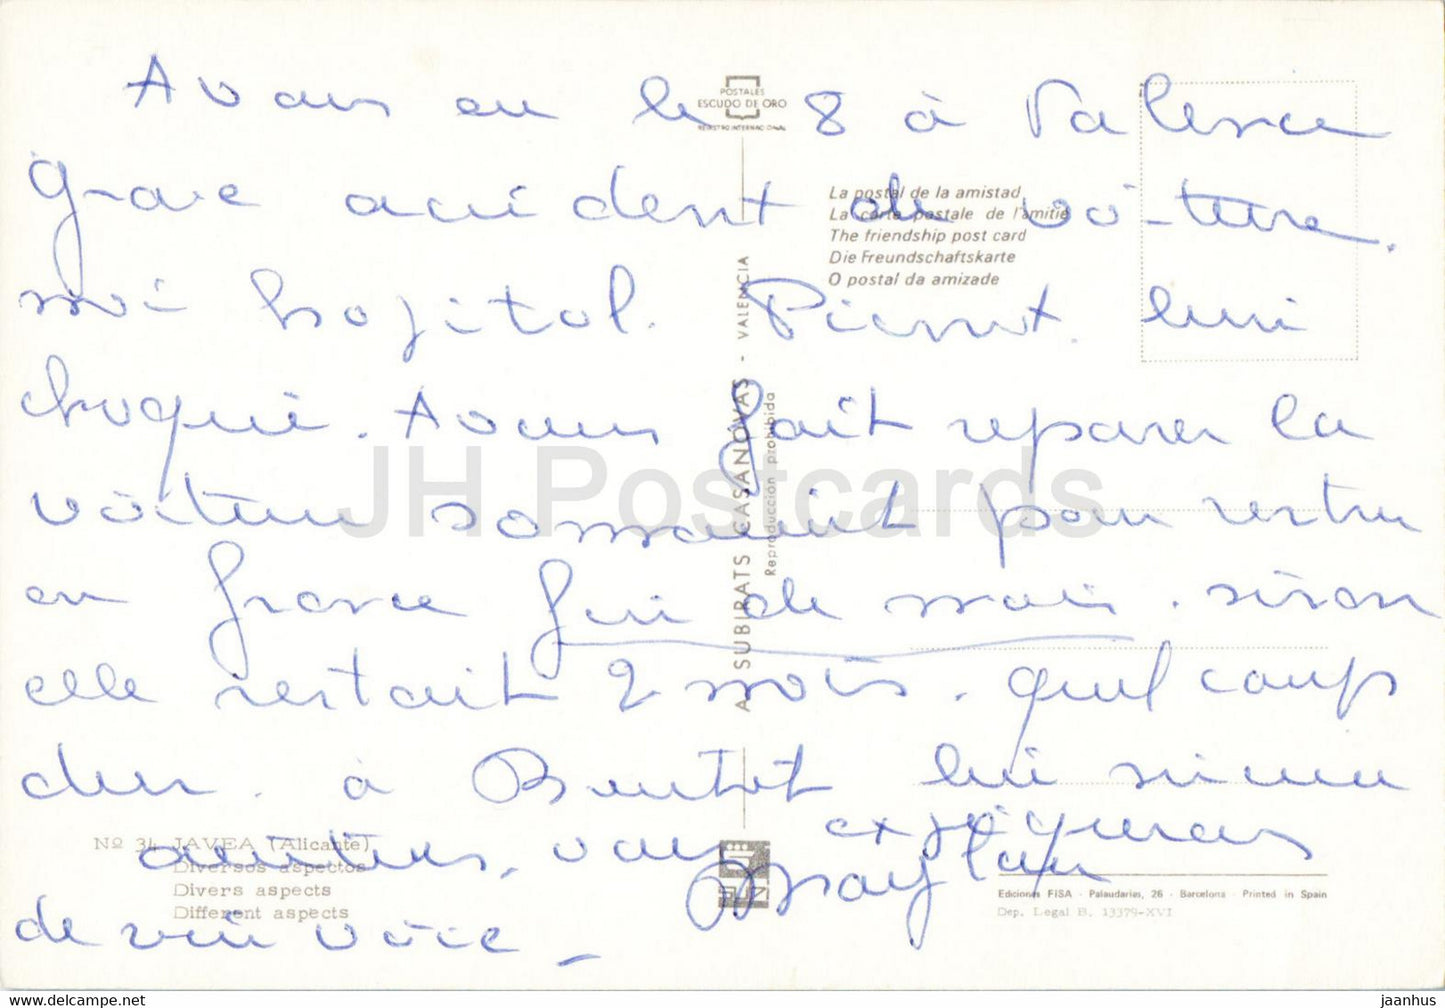 Avons eu le 8 à Valence
grave accident de voiture.
moi hopital. Pierrot. lui
choqué. Avons fait reparer la
voiture sommairement pour rentrer
en france fin de mois. sinon
elle restait 2 mois. quel coup
dur. à Bientot lui sincères
amitiés, vous expliquerons
de vive voix –
POSTALES
ESCUDO DE ORO
REGISTRO INTERNACIONAL
La postal de la amistad
La carte postale de l'amitié
The friendship post card
Die Freundschaftskarte
O postal da amizade
A. SUBIRATS CASANOVAS - VALENCIA
Reproducción prohibida
Nº 34 JAVEA (Alicante)
Diversos aspectos
Divers aspects
Different aspects
Ediciones FISA - Palaudarias, 26 - Barcelona - Printed in Spain
Dep. Legal B. 13379-XVI
JH Postcards
https://jhpostcards.com
jaanhus